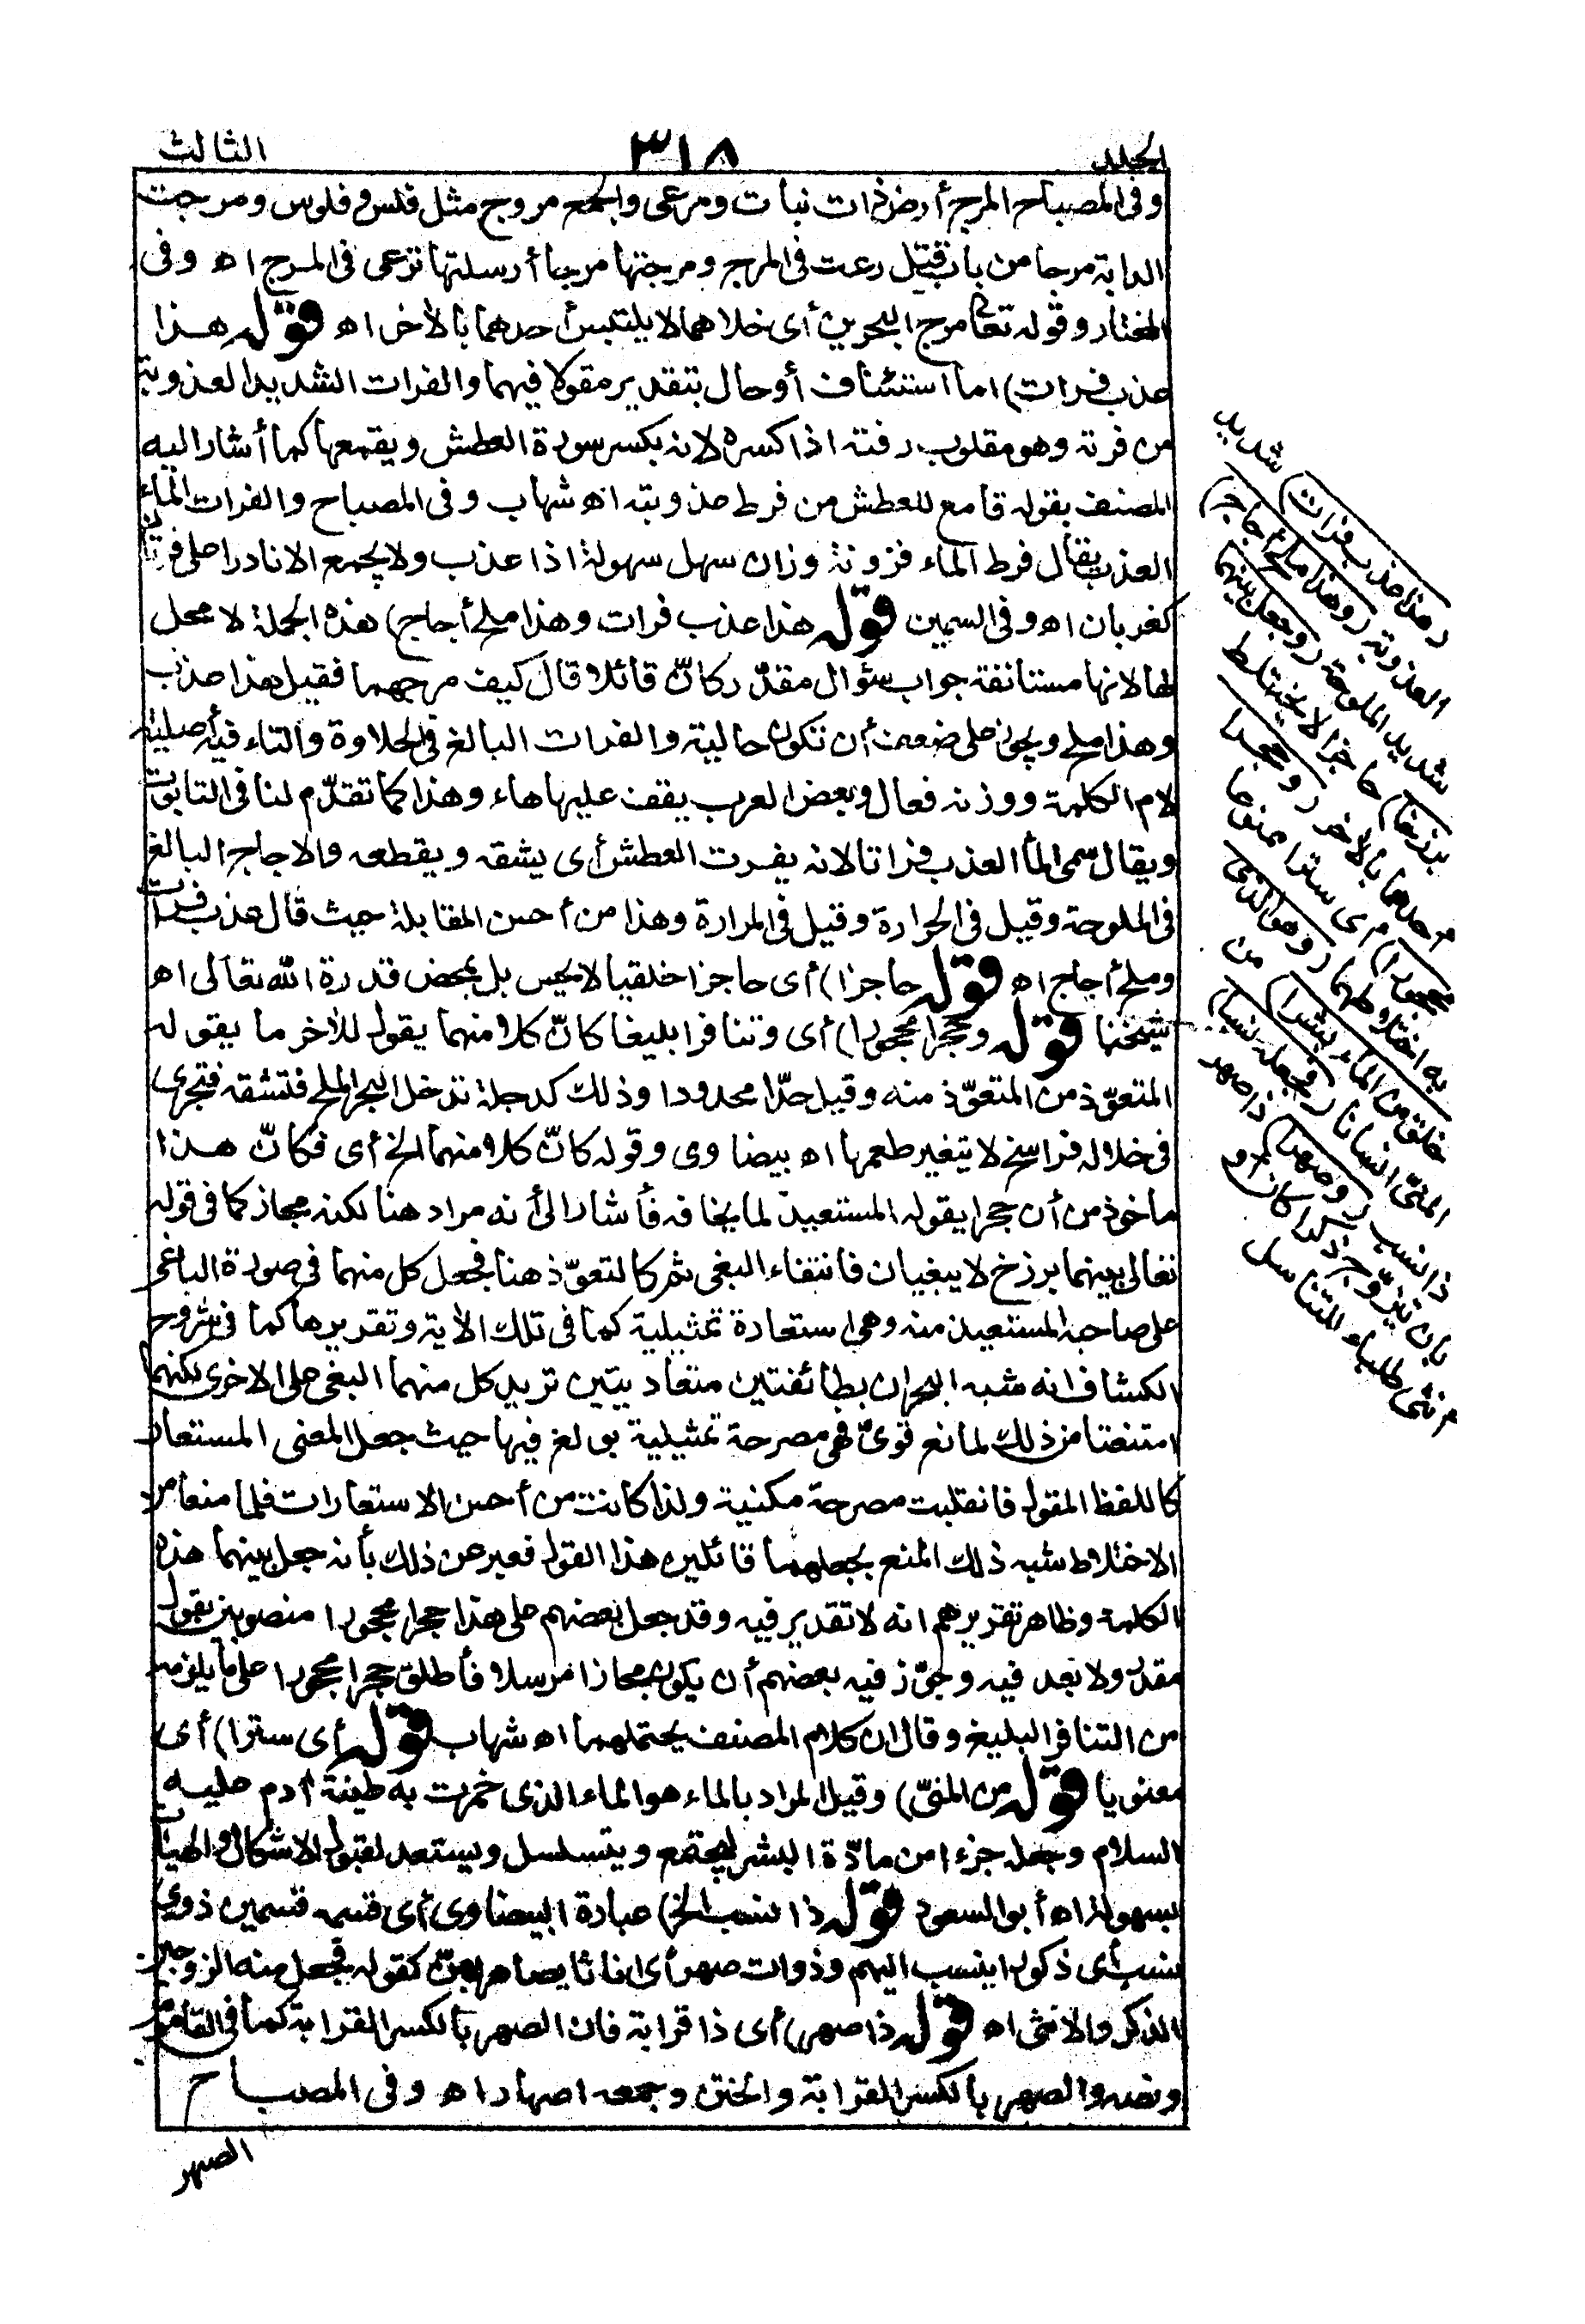 الجلد ٣١٨ الثالث
وفى المصباح المرج أرض ذات نبات ومرعى والجمع مروج مثل فلس وفلوس ومرجت
الدابة مرجا من باب قتل رعت فى المرج ومرجتها مرجا أرسلتها ترعى فى المرج اه وفى
المختار وقوله تعالى مرج البحرين أى خلاهما لا يلتبس أحدهما بالأخر اه قوله هذا
عذب فرات) اما استئناف أو حال بتقدير مقولا فيهما والفرات الشديد العذوبة
من فرته وهو مقلوب رفته اذا كسره لانه يكسر سورة العطش ويقمعها كما أشار اليه
المصنف بقوله قامع للعطش من فرط عذوبته اه شهاب وفى المصباح والفرات الماء
العذب يقال فرط الماء فزونة وزان سهل سهولة اذا عذب ولا يجمع الا نادرا على فرتان
كغربان اه وفى السمين قوله هذا عذب فرات وهذا ملح أجاج) هذه الجملة لا محل
لها لانها مستانفة جواب سئوال مقدّر كانّ قائلا قال كيف مرجهما فقيل هذا عذب
وهذا ملح ويجوز على ضعف أن تكون حالية والفرات البالغ فى الحلاوة والتاء فيه أصلية
لام الكلمة ووزنه فعال وبعض العرب يقف عليها هاء وهذا كما تقدّم لنا فى التابوت
ويقال سمى الما العذب فراتا لانه يفرت العطش أى يشقه ويقطعه والاجاج البالغ
فى الملوحة وقيل فى الحرارة وقيل فى المرارة وهذا من أحسن المقابلة حيث قال عذب فرات
وملح أجاج اه قوله حاجزا) أى حاجزا خلقيا لا يحس بل بمحض قدرة الله تعالى اه
شيخنا قوله وحجرا محجورا) أى وتنافرا بليغا كانّ كلا منهما يقول للأخر ما يقوله
المتعوّذ من المتعوّذ منه وقيل حدّا محدودا وذلك كدجلة تدخل البحر الملح فتشقه فتجرى
فى خلاله فراسخ لا يتغير طعمها اه بيضاوى وقوله كانّ كلا منهما الخ أى فكانّ هذا
مأخوذ من أن حجرا يقوله المستعيذ لما يخافه فأشار الى أنه مراد هنا لكنه مجاز كما فى قوله
تعالى بينهما برزخ لا يبغيان فانتفاء البغى ثم كالتعوّذ هنا فجعل كل منهما فى صورة الباغى
على صاحبه المستعيذ منه وهى استعارة تمثيلية كما فى تلك الأية وتقريرها كما فى شروح
الكشاف انه شبه البحران بطائفتين متعاديتين تريد كل منهما البغى على الاخرى لكنهما
امتنعتا من ذلك لمانع قوىّ فهى مصرحة تمثيلية بولغ فيها حيث جعل المعنى المستعار
كاللفظ المقول فانقلبت مصرحة مكنية ولذا كانت من أحسن الاستعارات فلما منعا من
الاختلاط شبه ذلك المنع بجعلهما قائلين هذا القول فعبر عن ذلك بأنه جعل بينهما هذه
الكلمة وظاهر تقريرهم انه لا تقدير فيه وقد جعل بعضهم على هذا حجرا محجورا منصوبين بقول
مقدر ولا بعد فيه وجوّز فيه بعضهم أن يكون مجازا مرسلا فأطلق حجرا محجورا على ما يلزمه
من التنافر البليغ وقال ان كلام المصنف يحتملهما اه شهاب قوله أى سترا) أى
معنويا قوله من المنىّ) وقيل المراد بالماء هو الماء الذى خمرت به طينة أدم عليه
السلام وجعل جزءا من مادّة البشر ليجتمع ويتسلسل ويستعد لقبول الاشكال والهيات
بسهولة اه أبو السعود قوله ذا نسب الخ) عبارة البيضاوى أى قسمه قسمين ذوى
نسب أى ذكورا ينسب اليهم وذوات صهر أى اناثا يصاهر بهنّ كقوله فجعل منه الزوجين
الذكر والانثى اه قوله ذا صهر) أى ذا قرابة فان الصهر بالكسر القرابة كما فى القاموس
ونصه والصهر بالكسر القرابة والختن وجمعه اصهار اه وفى المصباح
الصهر
(هذا عذب فرات) شديد
العذوبة (وهذا ملح أجاج)
شديد الملوحة (وجعل بينهما
برزخا) حاجزا لا يختلط
أحدهما بالأخر (وحجرا
محجورا) أى سترا ممنوعا
به اختلاطهما (وهو الذى
خلق من الماء بشرا) من
المنىّ انسانا (فجعله نسبا)
ذا نسب (وصهرا) ذا صهر
بان يتزوّج ذكرا كان أو
أنثى طلبا للتناسل